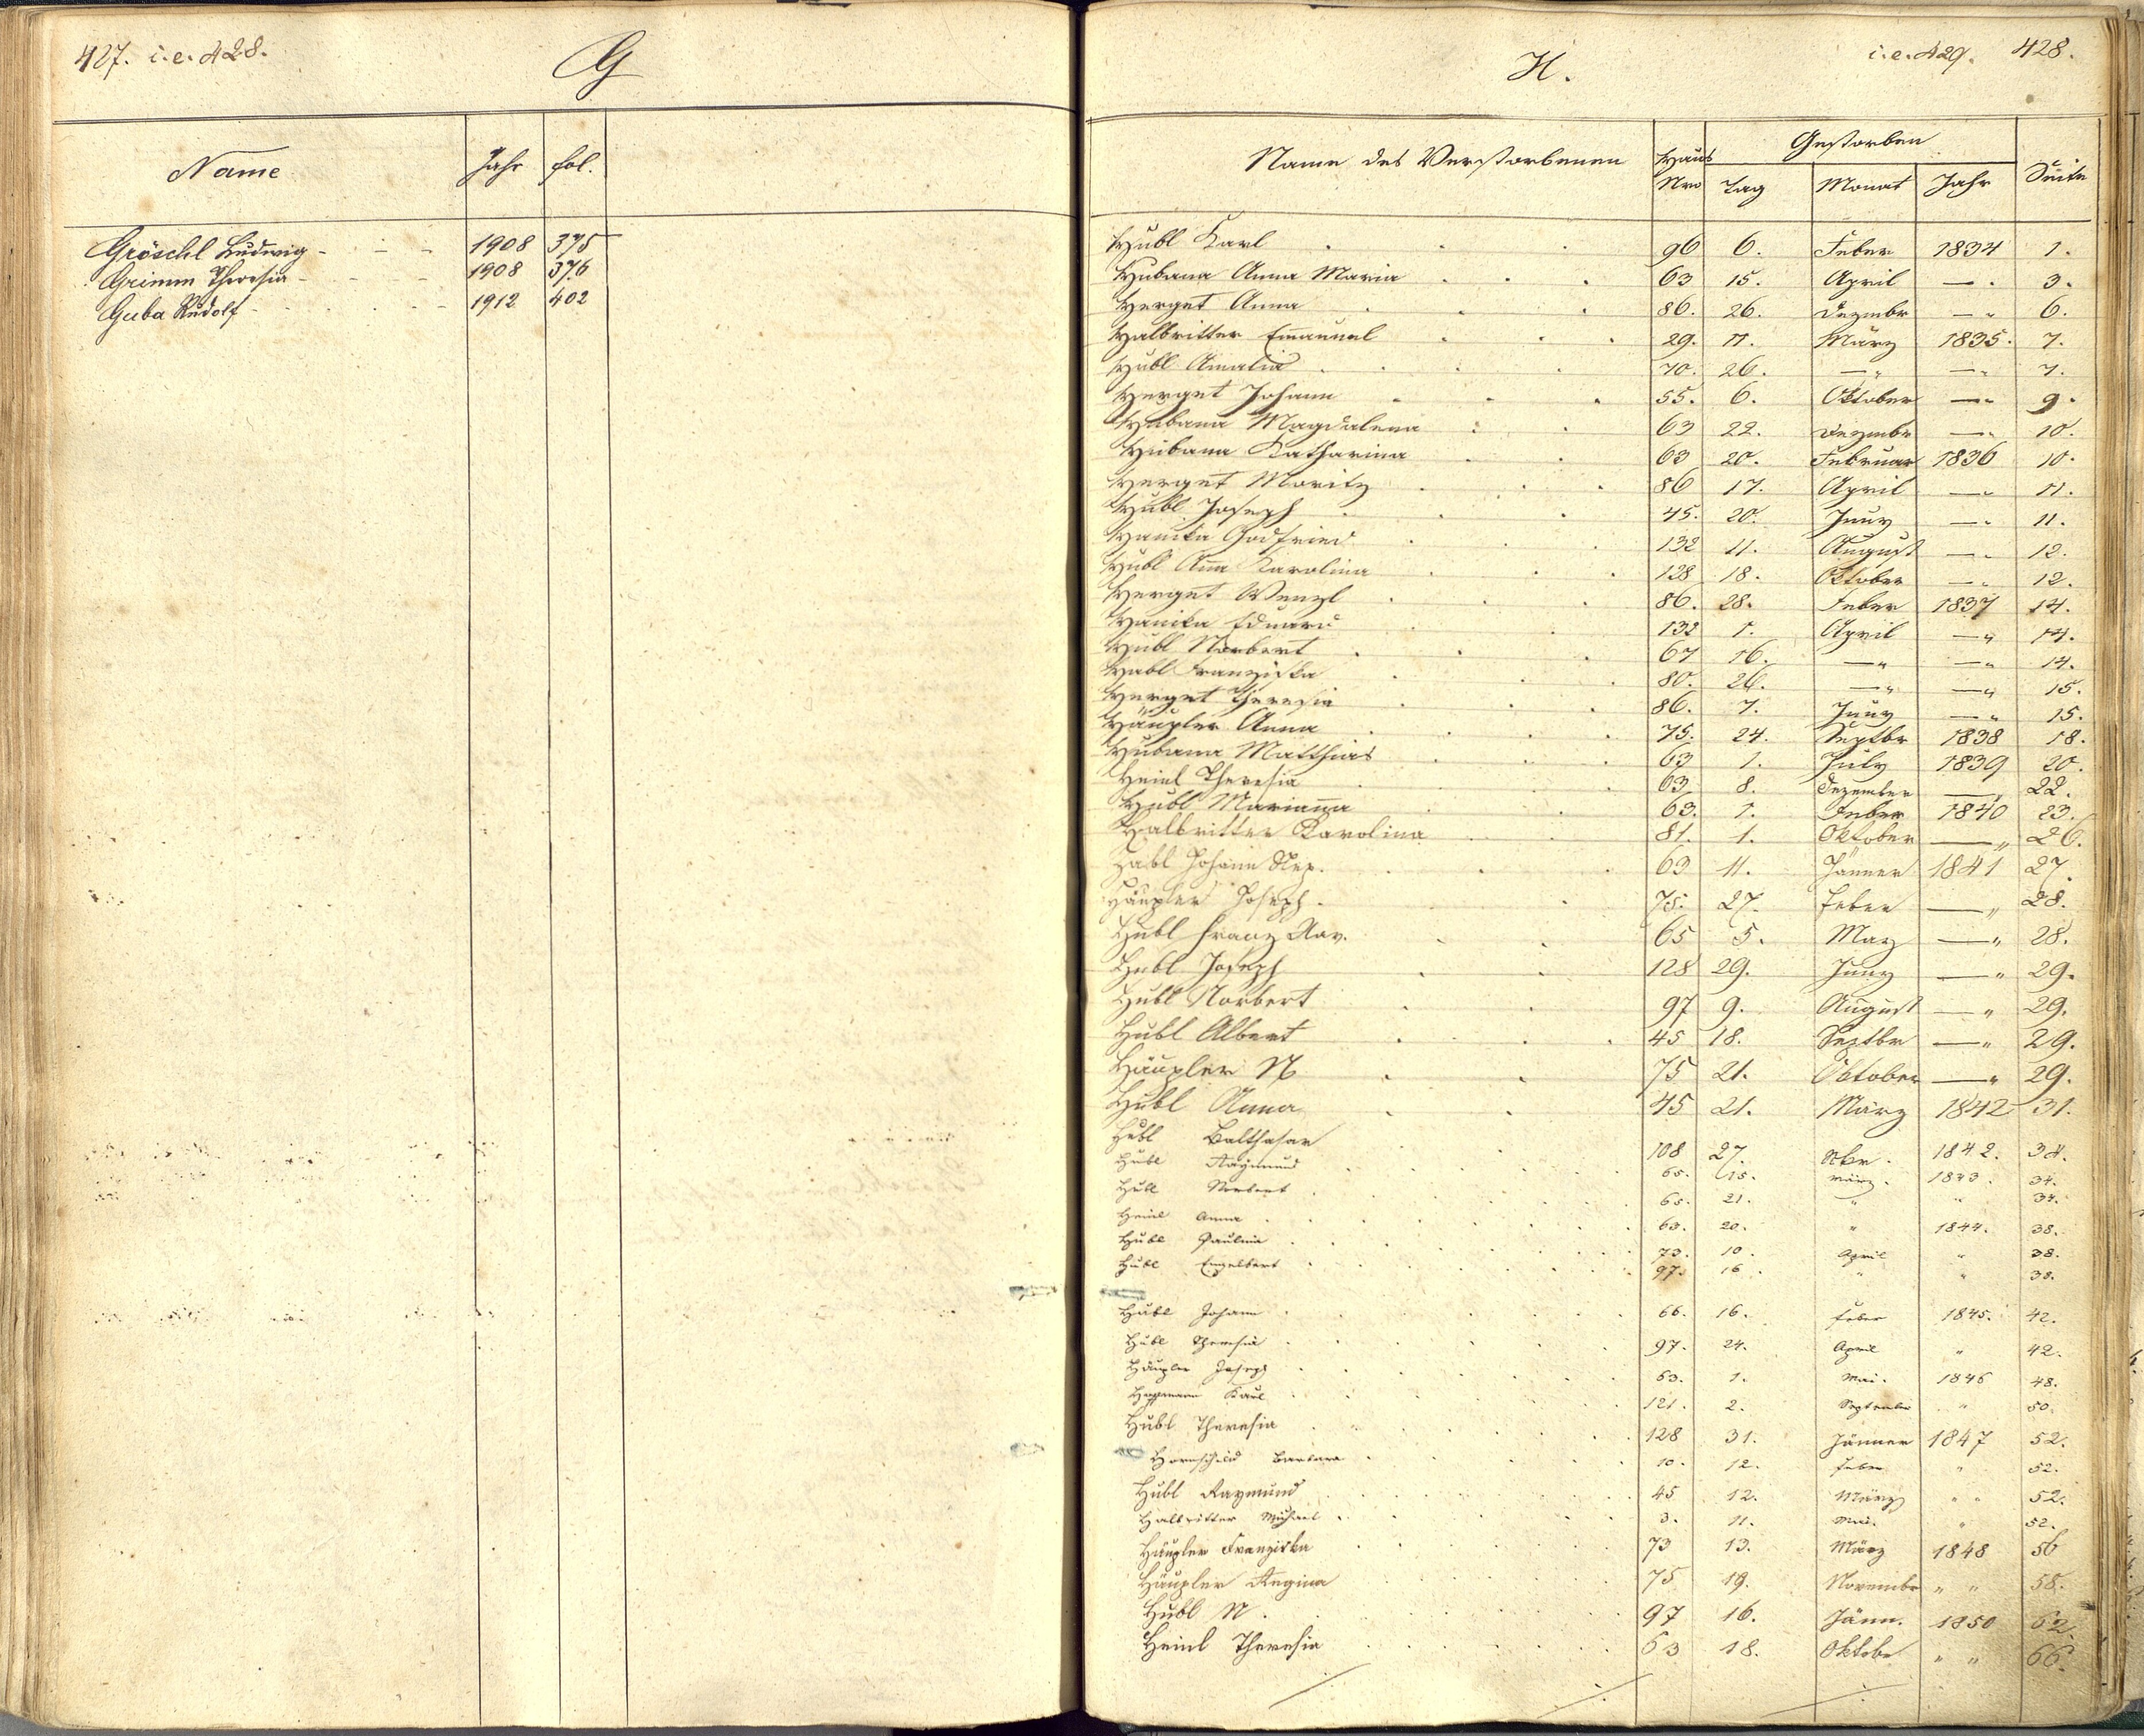 427. i.e. 428.
G
Name Jahr fol.
Gröschl Ludwig - - - 1908 375
Grimm Theresia - - - 1908 376
Guba Rudolf - - - 1912 402
H.
i.e. 429. 428.
Name des Verstorbenen Haus Nro Gestorben Seite
Tag Monat Jahr
Hubl Karl 96 6. Feber 1834 1.
Hubana Anna Maria 63 15. April — 3.
Herget Anna 86. 26. Dezembr — 6.
Halbritter Emanuel 29. 11. März 1835. 7.
Hubl Amalia 70. 26. — — 7.
Herget Johann 55. 6. Oktober — 9.
Hubana Magdalena 63 22. Dezembr — 10.
Hubana Katharina 63 20. Februar 1836 10.
Herget Moritz 86 17. April — 11.
Hubl Joseph 45. 20. Juny — 11.
Hanika Godfried 132 11. August — 12.
Hubl Anna Karolina 128 18. Oktober — 12.
Herget Wenzl 86. 28. Feber 1837 14.
Hanika Eduard 132 1. April — 14.
Hubl Norbert 67 16. — — 14.
Habl Franziska 80. 26. — — 15.
Herget Theresia 86. 7. Juny — 15.
Häupler Anna 75. 24. Septbr 1838 18.
Hubana Matthias 63 1. July 1839 20.
Heinl Theresia 63 8. Dezember — 22.
Hubl Marianna 63. 1. Feber 1840 23.
Halbritter Karolina 81. 1. Oktober — 26.
Habl Johann Nep. 63 11. Jänner 1841 27.
Häupler Joseph 75. 27. Feber — 28.
Hubl Franz Xav. 65 5. May — 28.
Hubl Joseph 128 29. Juny — 29.
Hubl Norbert 97 9. August — 29.
Hubl Albert 45 18. Septbr — 29.
Häupler N 75 21. Oktober — 29.
Hubl Anna 45 21. März 1842 31.
Hubl Balthasar 108 27. 1842. 34.
Hubl Raymund 65. 15. März. 1843. 34.
Hubl Norbert 65. 21. " " 34.
Heinl Anna 63. 20. " 1844. 38.
Hubl Paulina 73. 10. April " 38.
Hubl Engelbert 97. 16 " " 38.
Hubl Johann 66. 16. Feber 1845. 42.
Hubl Theresia 97. 24. April " 42.
Häupler Joseph 63. 1. Mai. 1846 48.
Karl 121. 2. September " 50.
Hubl Theresia 128 31. Jänner 1847 52.
Hornschild Barbara 10. 12. Feber " 52.
Hubl Raymund 45 12. März " " 52.
Halbritter Michael 3. 11. Mai. " 52.
Häupler Franziska 73 13. März 1848 56
Häupler Regina 75 19. Novembr " " 58.
Hubl N. 97 16. Jänn. 1850 62.
Heinl Theresia 63 18. Oktobr " " 66.